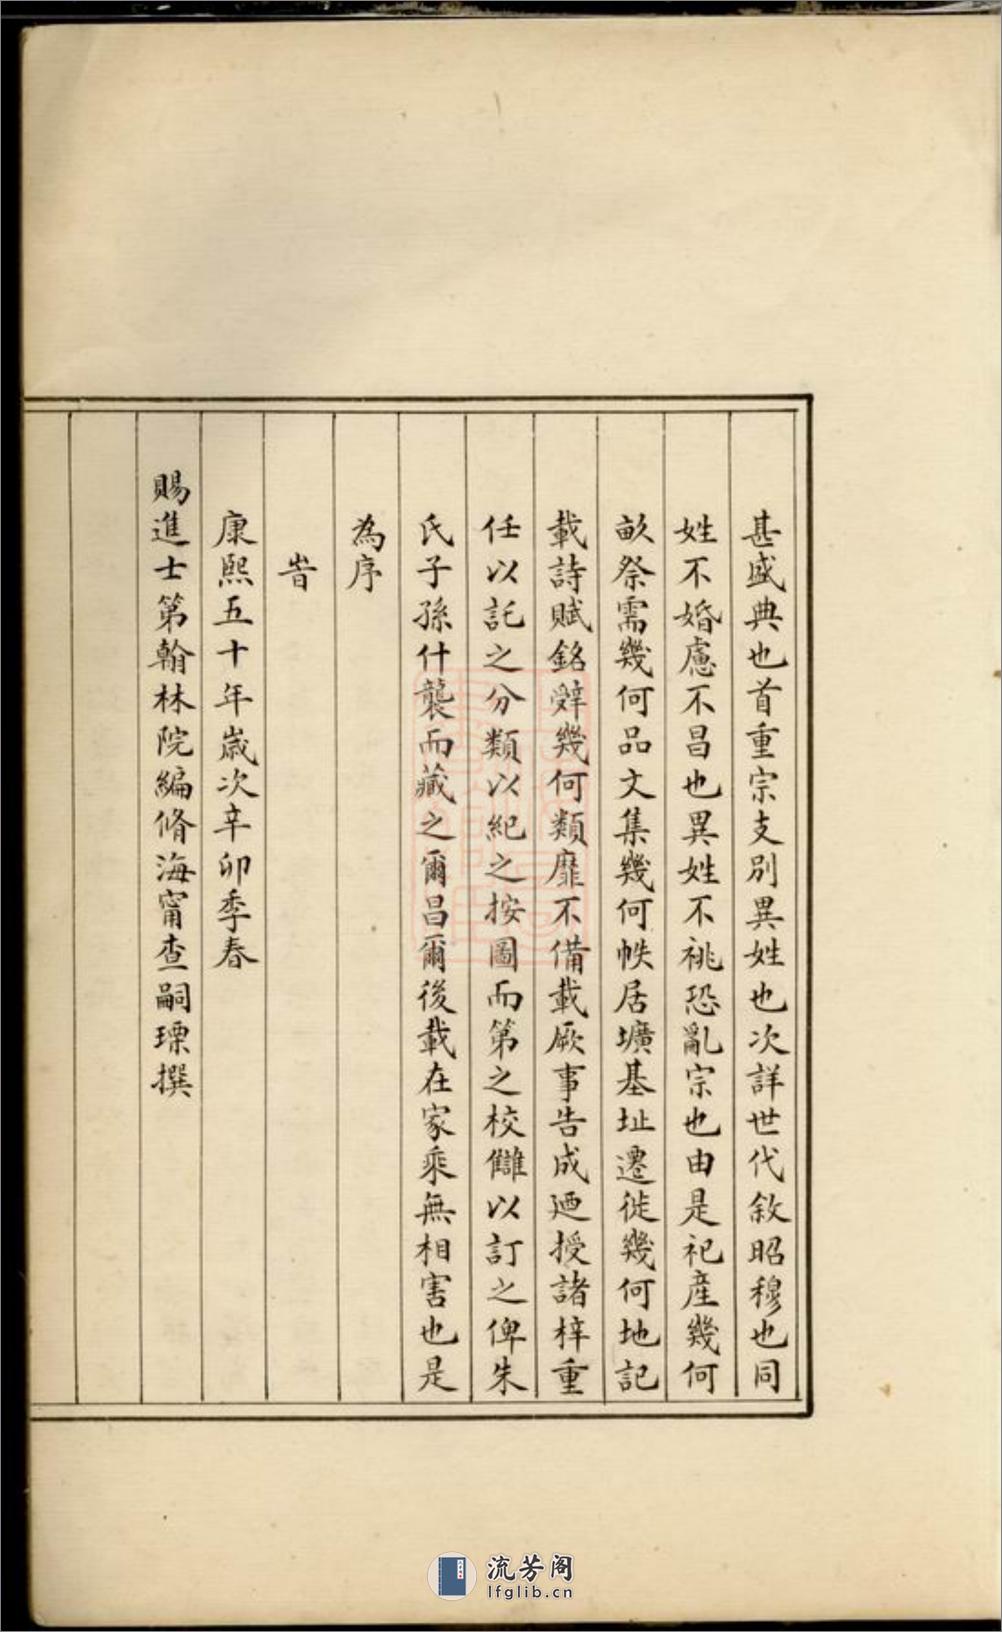 甚盛典也首重宗支別異姓也次詳世代敘昭穆也同
姓不婚慮不昌也異姓不祧恐亂宗也由是祀產幾何
畝祭需幾何品文集幾何帙居壙基址遷徙幾何地記
載詩賦銘辭幾何類靡不備載厥事告成廼授諸梓重
任以託之分類以紀之按圖而第之校讎以訂之俾朱
氏子孫什襲而藏之爾昌爾後載在家乘無相害也是
為序
旹
康熙五十年歲次辛卯季春
賜進士第翰林院編脩海甯查嗣瑮撰
流芳阁
lfglib.cn